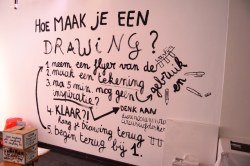 HOE MAAK JE EEN
DRAWING?
1. neem een flyer van de
2. maak een tekening
3. na 5 min. nog geen
inspiratie?
gebruik
en
DENK AAN
4. KLAAR?!
hang je Drawing terug
5. begin terug bij 1